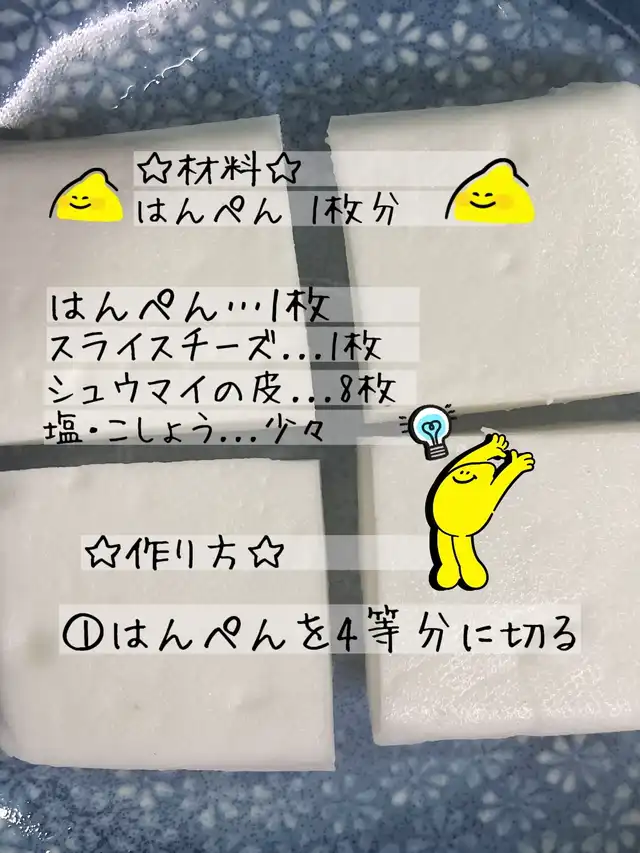 ☆材料☆
はんぺん 1枚分
はんぺん…1枚
スライスチーズ...1枚
シュウマイの皮...8枚
塩・こしょう...少々
☆作り方☆
①はんぺんを4等分に切る